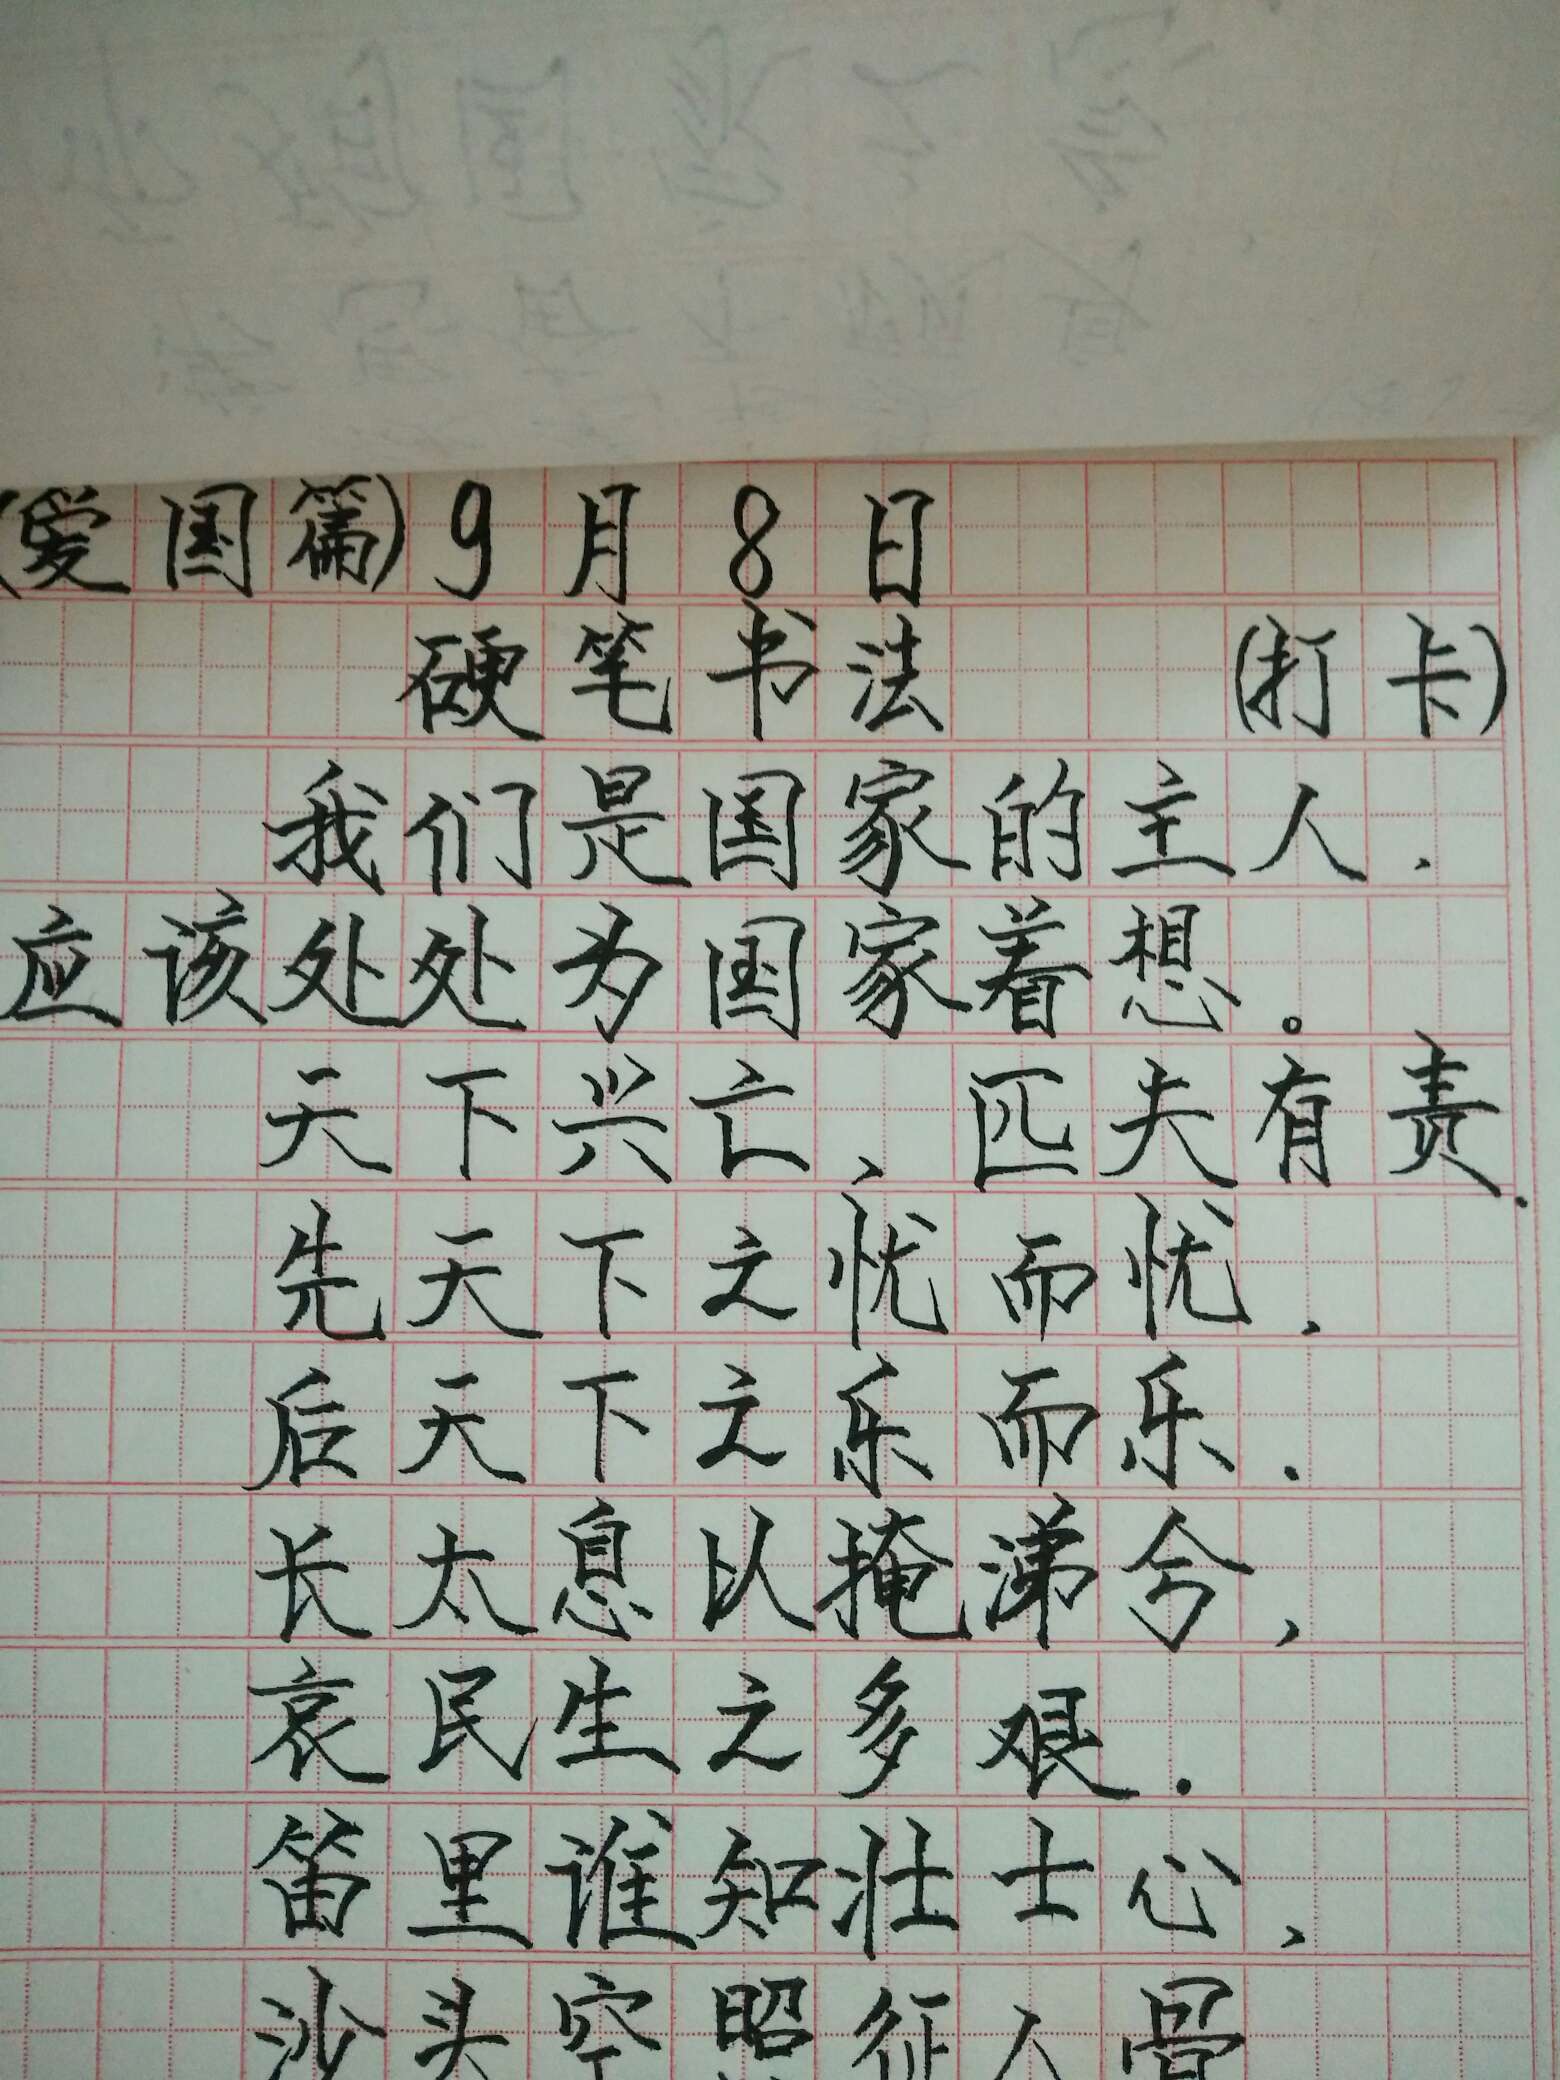 (爱国篇)9月8日
硬笔书法 (打卡)
我们是国家的主人.
应该处处为国家着想。
天下兴亡、匹夫有责.
先天下之忧而忧,
后天下之乐而乐.
长太息以掩涕兮,
哀民生之多艰.
笛里谁知壮士心,
沙头空照征人骨